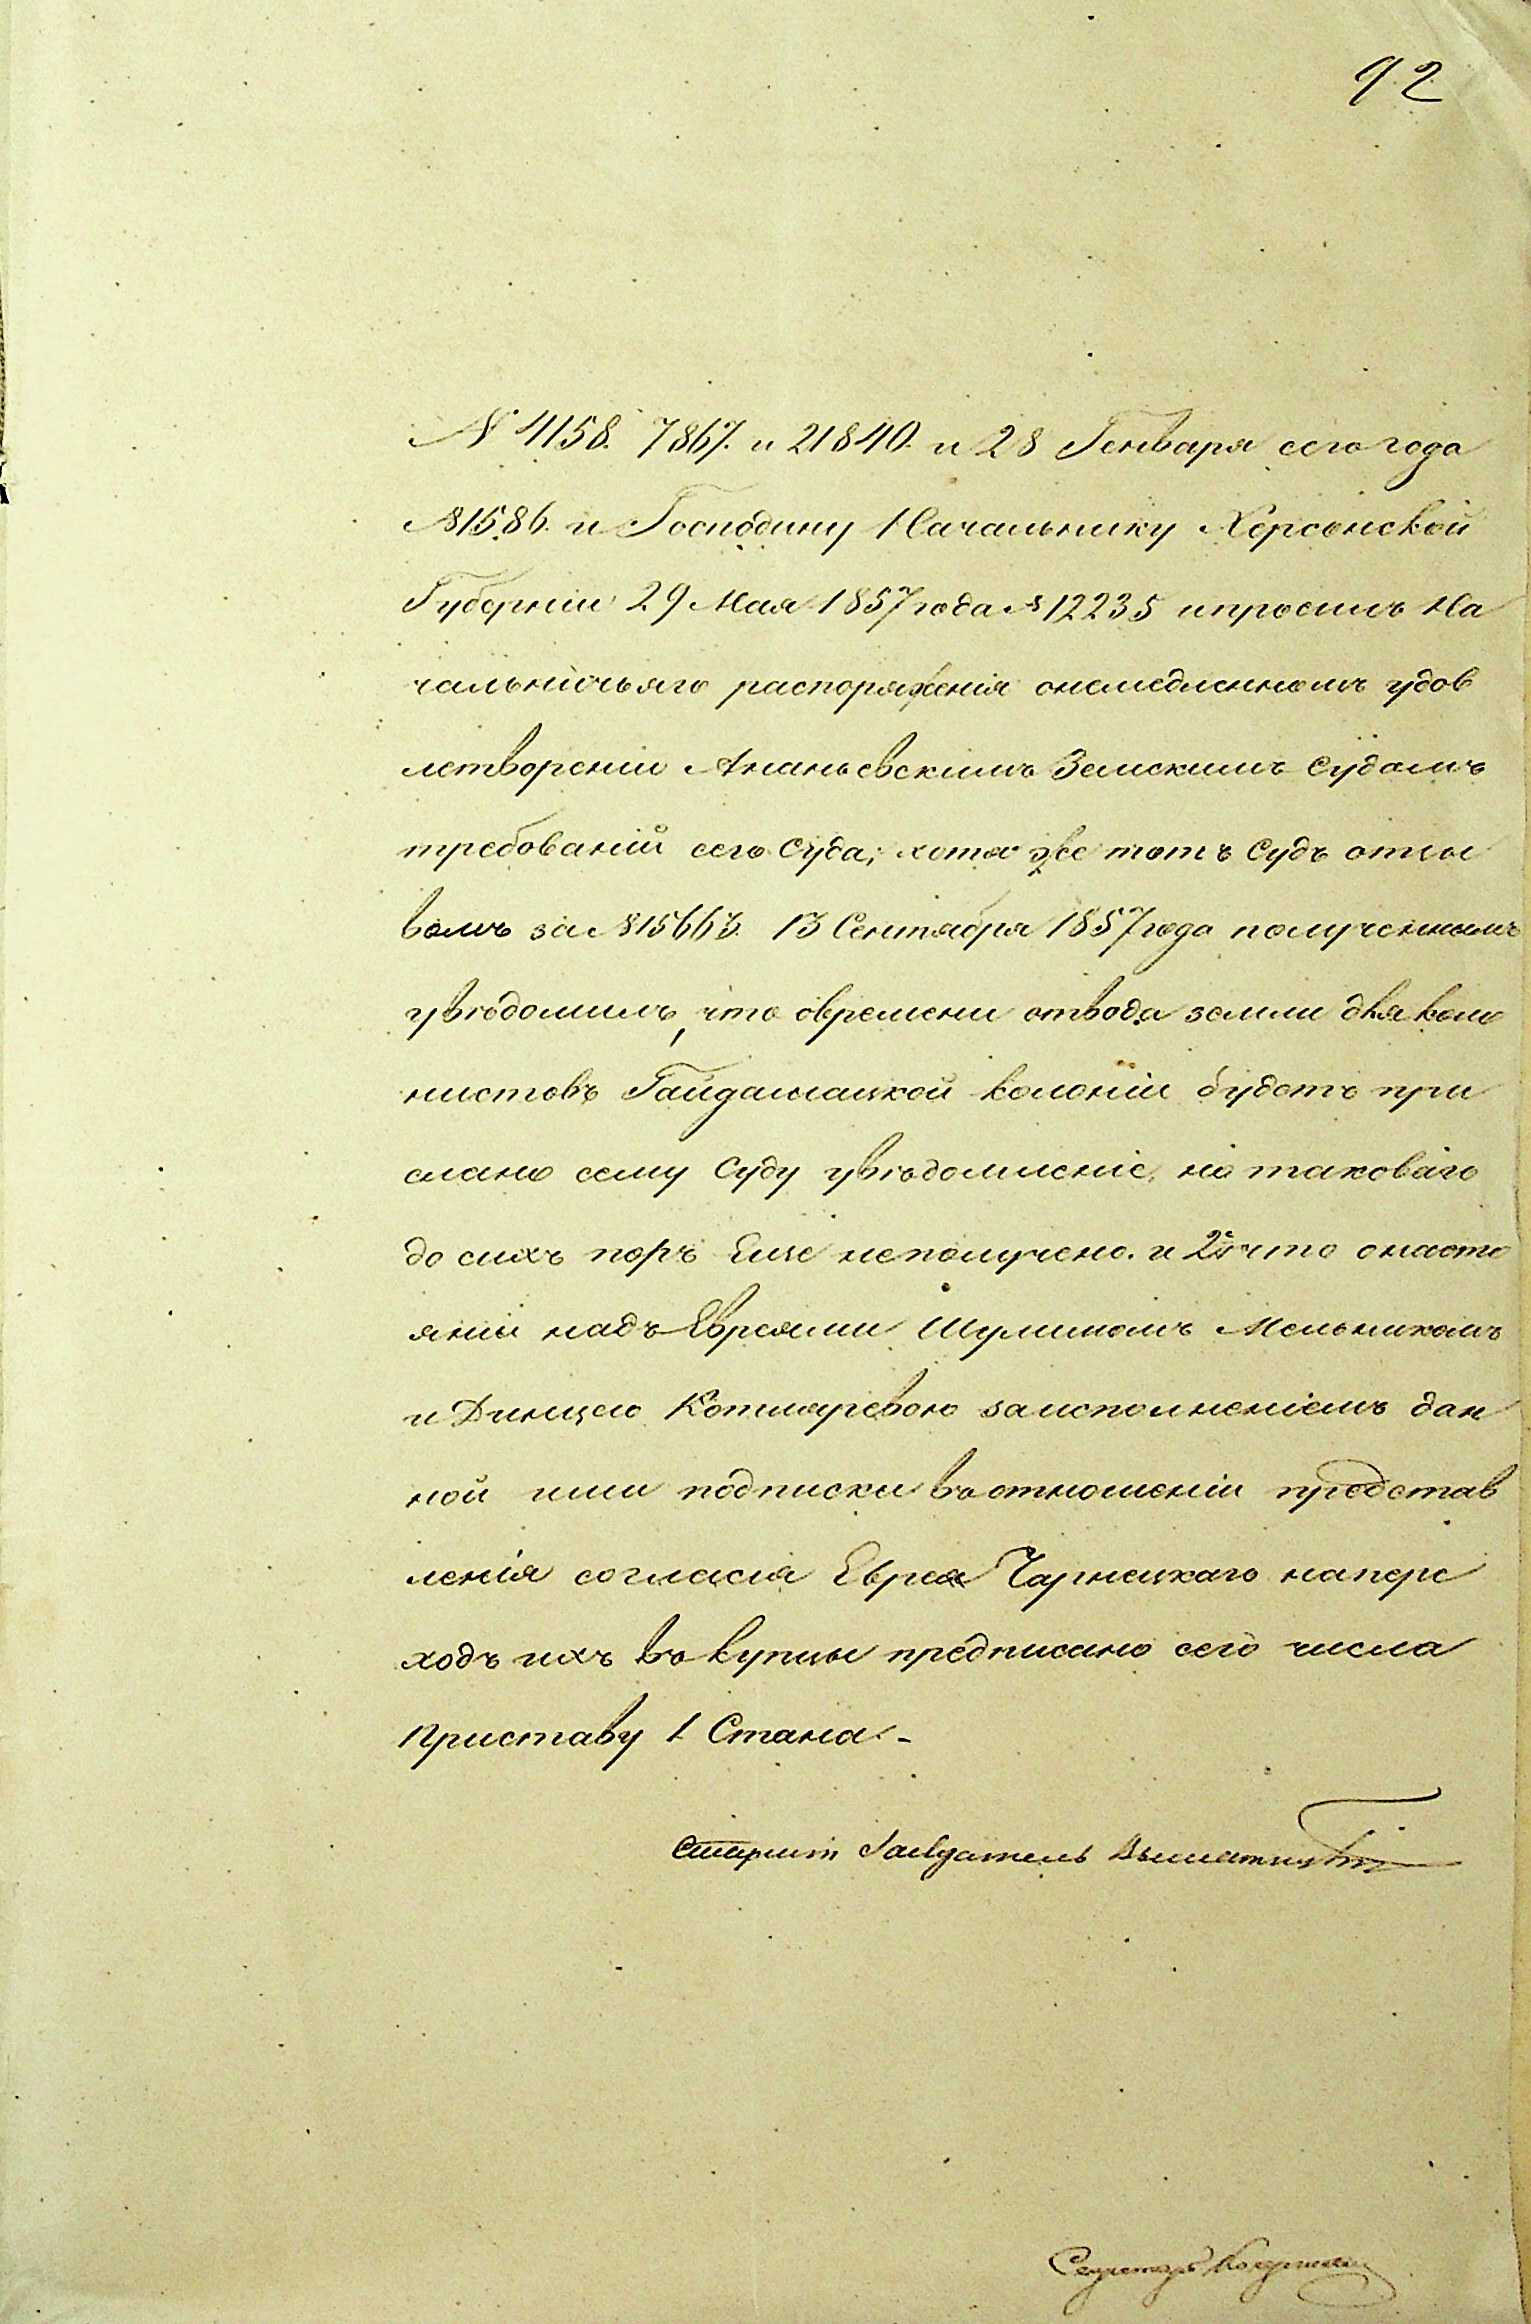 92
№ 4158. 7867. и 21840. и 28 Генваря сего года
№ 1586. и Господину Начальнику Херсонской
Губерніи 29 Мая 1857 года № 12235 и просилъ На
чальничьяго распоряженія о немедленномъ удов
летвореніи Ананьевскимъ Земскимъ Судомъ
требованій сего Суда; хотя же тотъ Судъ отзы
вомъ за № 15663. 13 Сентября 1857 года полученнымъ
увѣдомилъ, что о времени отвода земли для коло
нистовъ Гайдамацкой колоніи будетъ при
слано сему Суду увѣдомленіе, но таковаго
до сихъ поръ Еще не получено. и 2е что о насто
яніи надъ Евреями Шулимомъ Мельникомъ
и Динцею Котляревою за исполненіемъ дан
ной ими подписки въ отношеніи представ
ленія согласія Еврея Чарнецкаго на пере
ходъ ихъ въ купцы предписано сего числа
Приставу 1 Стана. -
Старшій Засѣдатель
Секретарь